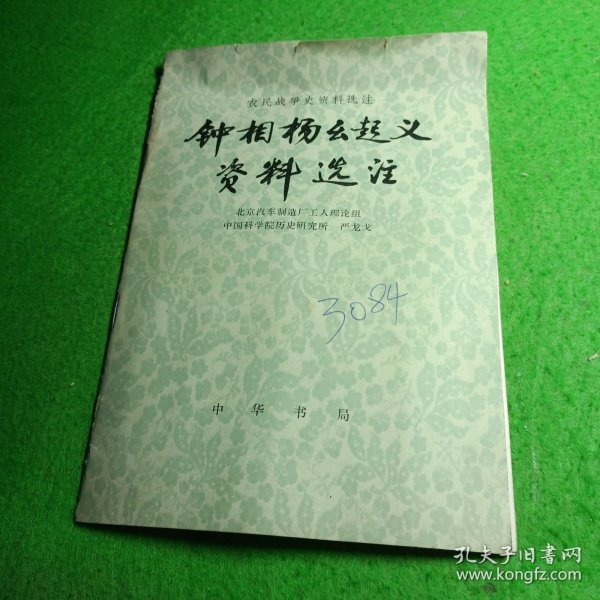 农民战争史资料选注
钟相杨么起义
资料选注
北京汽车制造厂工人理论组
中国科学院历史研究所 严龙戈
3084
中华书局
孔夫子旧书网
www.kongfz.com